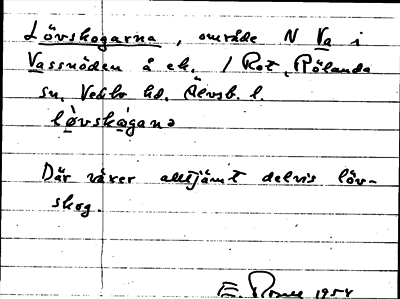 Lövskogarna, område N Va i
Vassnöden å ek. / Rot, Rölanda
sn, Vedbo hd. Älvsb. l.
lø̀vskògana
Där växer alltjämt delvis löv-
skog.
E. 1954